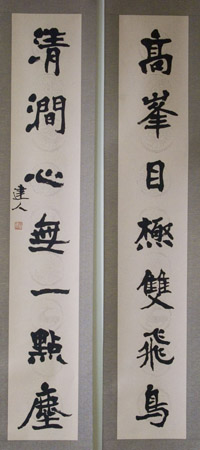 高峯目極雙飛鳥
清澗心無一點塵
達人